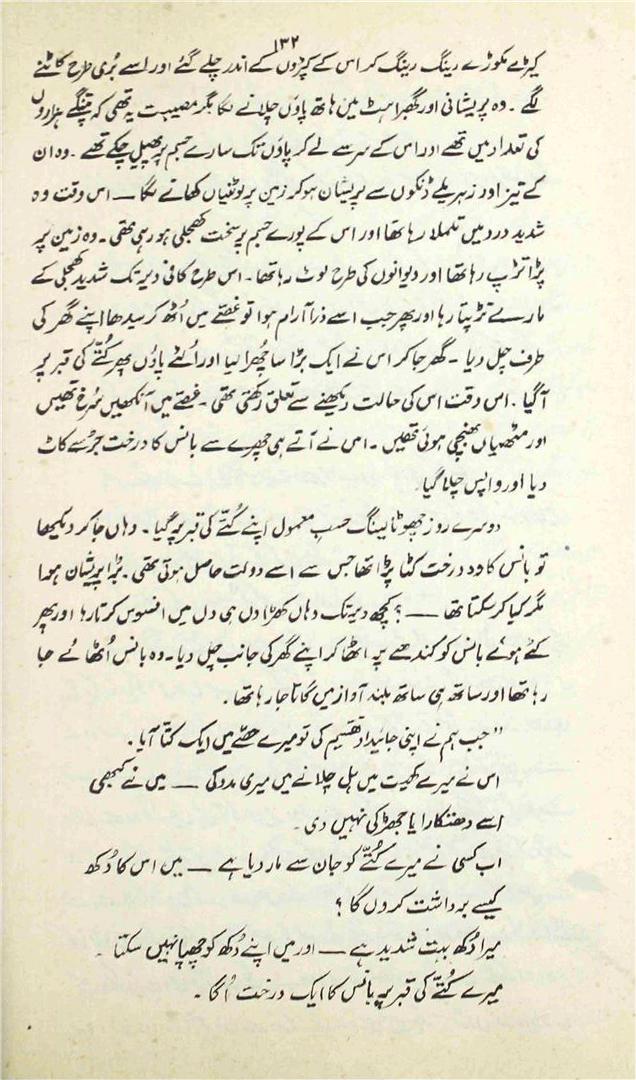 ۱۳۲
کیڑے مکوڑے رینگ رینگ کر اس کے کپڑوں کے اندر چلے گئے اور اسے بُری طرح کاٹنے
لگے ۔ وہ پریشانی اور گھبراہٹ میں ہاتھ پاؤں چلانے لگا مگر مصیبت یہ تھی کہ پتنگے ہزاروں
کی تعداد میں تھے اور اس کے سر سے لے کر پاؤں تک سارے جسم پر پھیل چکے تھے ۔ وہ ان
کے تیز اور زہریلے ڈنکوں سے پریشان ہو کر زمین پر لوٹنیاں کھانے لگا ــــ اس وقت وہ
شدید درد میں تلملا رہا تھا اور اس کے پورے جسم پر سخت کھجلی ہو رہی تھی ۔ وہ زمین پر
پڑا تڑپ رہا تھا اور دیوانوں کی طرح لوٹ رہا تھا ۔ اس طرح کافی دیر تک شدید کھجلی کے
مارے تڑپتا رہا اور پھر جب اسے ذرا آرام ہوا تو غصّے میں اُٹھ کر سیدھا اپنے گھر کی
طرف چل دیا ۔ گھر جا کر اس نے ایک بڑا سا چُھرا لیا اور اُلٹے پاؤں پھر کُتّے کی قبر پر
آ گیا ۔ اس وقت اس کی حالت دیکھنے سے تعلق رکھتی تھی ۔ غصّے میں آنکھیں سُرخ تھیں
اور مٹھیاں بھنچی ہوئی تھیں ۔ اس نے آتے ہی چھرے سے بانس کا درخت جڑ سے کاٹ
دیا اور واپس چلا گیا ۔
دوسرے روز چھوٹا لینگ حسب معمول اپنے کُتّے کی قبر پر گیا ۔ وہاں جا کر دیکھا
تو بانس کا وہ درخت کٹا پڑا تھا جس سے اسے دولت حاصل ہوتی تھی ۔ بڑا پریشان ہوا
مگر کیا کر سکتا تھا ــــ ؟ کچھ دیر تک وہاں کھڑا دل ہی دل میں افسوس کرتا رہا اور پھر
کٹے ہوئے بانس کو کندھے پر اٹھا کر اپنے گھر کی جانب چل دیا ۔ وہ بانس اُٹھائے جا
رہا تھا اور ساتھ ہی ساتھ بلند آواز میں گاتا جا رہا تھا ۔
"جب ہم نے اپنی جائیداد تقسیم کی تو میرے حصّے میں ایک کتا آیا ۔
اس نے میرے کھیت میں ہل چلانے میں میری مدد کی ــــ میں نے کبھی
اسے دھتکارا یا جھڑکی نہیں دی ۔
اب کسی نے میرے کُتّے کو جان سے مار دیا ہے ــــ میں اس کا دُکھ
کیسے برداشت کروں گا ؟
میرا دُکھ بہت شدید ہے ــــ اور میں اپنے دُکھ کو چھپا نہیں سکتا ۔
میرے کُتّے کی قبر پر بانس کا ایک درخت اُگا ۔